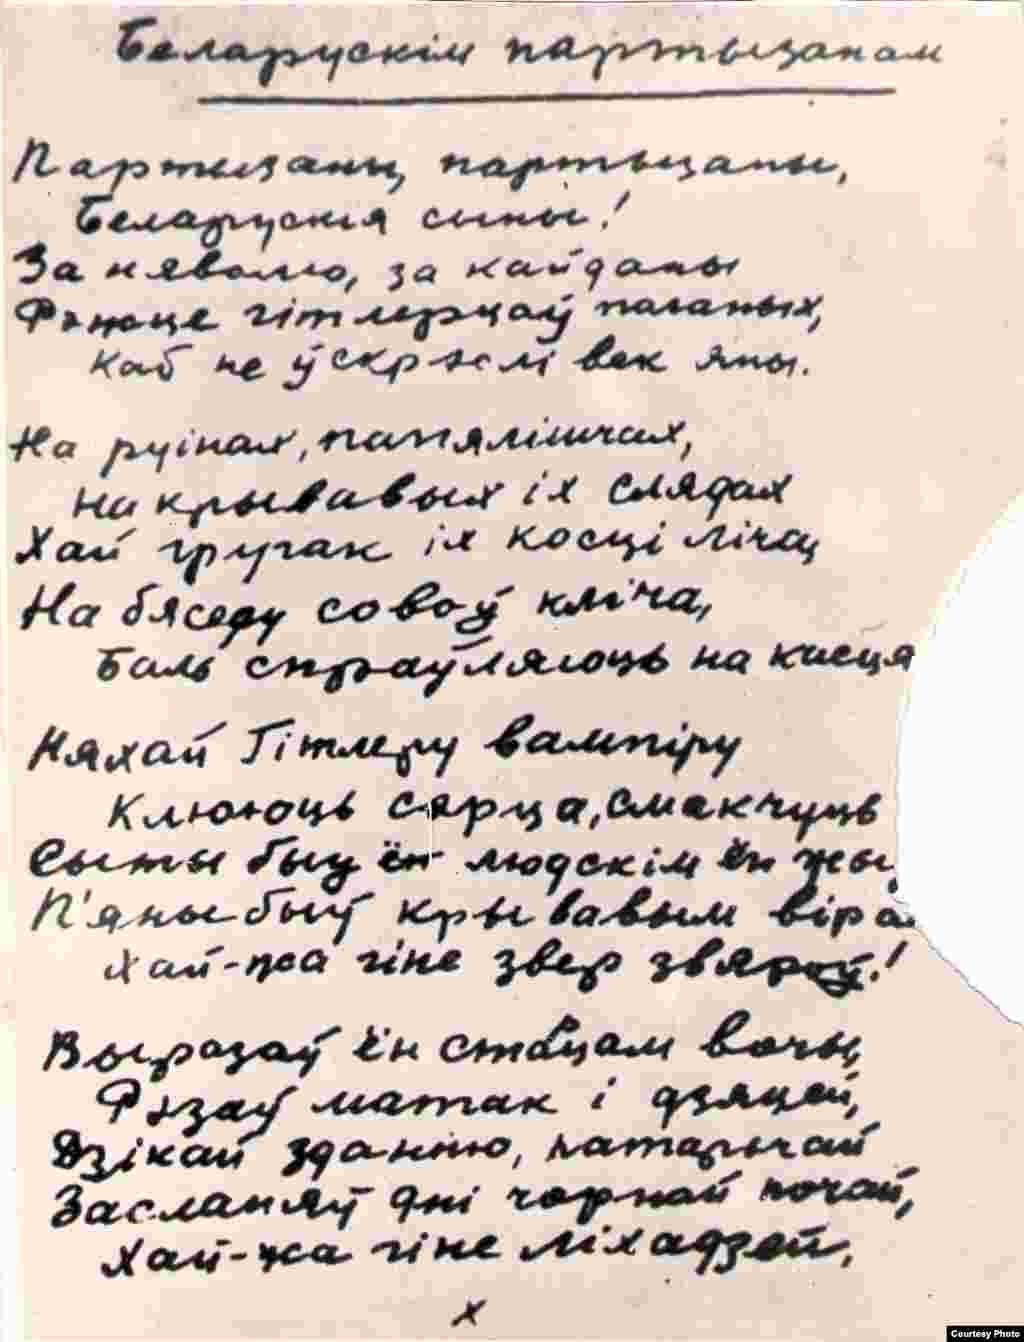 Беларускім партызанам
Партызаны, партызаны,
Беларускія сыны!
За няволю, за кайданы
Рэжце гітлерцаў паганых,
Каб не ўскрэслі век яны.
На руінах, папялішчах,
На крывавых іх слядах
Хай груган іх косці лічац
На бяседу соваў кліча,
Баль спраўляюць на касцях
Няхай Гітлеру вампіру
Клююць сэрца, смакчуць
Сыты быў ён людскім ён жы
П'яны быў крывавым вірам
Хай-жа гіне звер звяроў!
Выразаў ён старцам вочы,
Рэзаў матак і дзяцей,
Дзікай зданню,
Засланяў дні чорнай ночай,
Хай-жа гіне ліхадзей,
х
Courtesy Photo